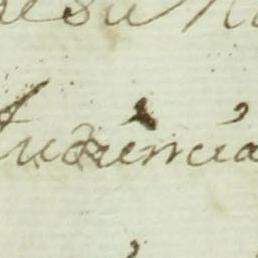 de su
Audiencia